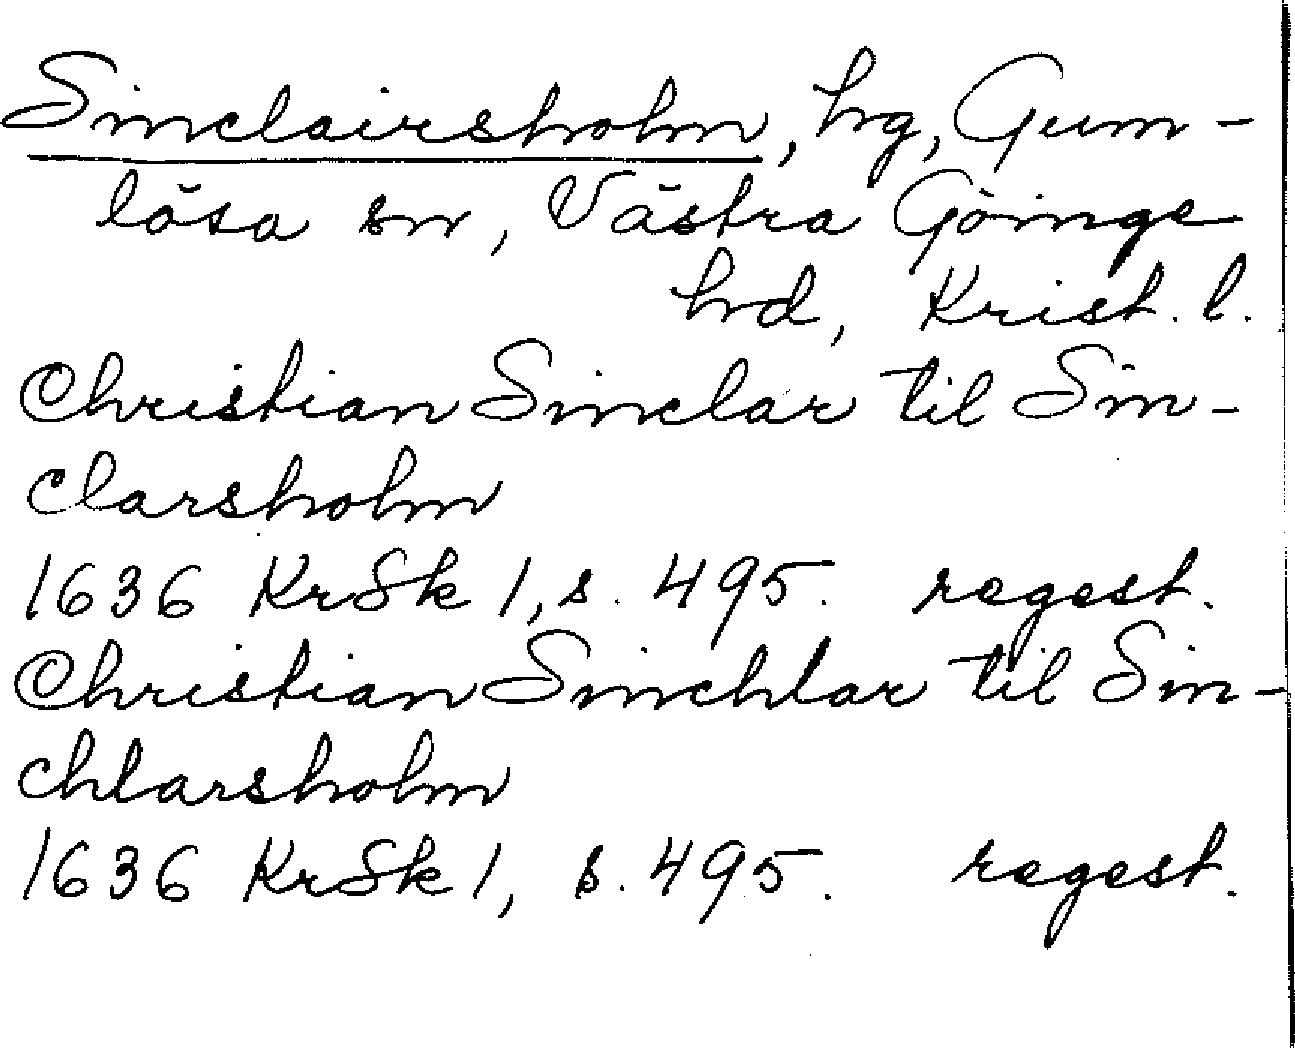 Sinclairsholm, hg, Gum-
lösa sn, Västra Göinge
hrd, Krist. l.
Christian Sinclar til Sin-
clarsholm
1636 KrSk 1, s. 495. regest.
Christian Sinchlar til Sin-
chlarsholm
1636 KrSk 1, s. 495. regest.